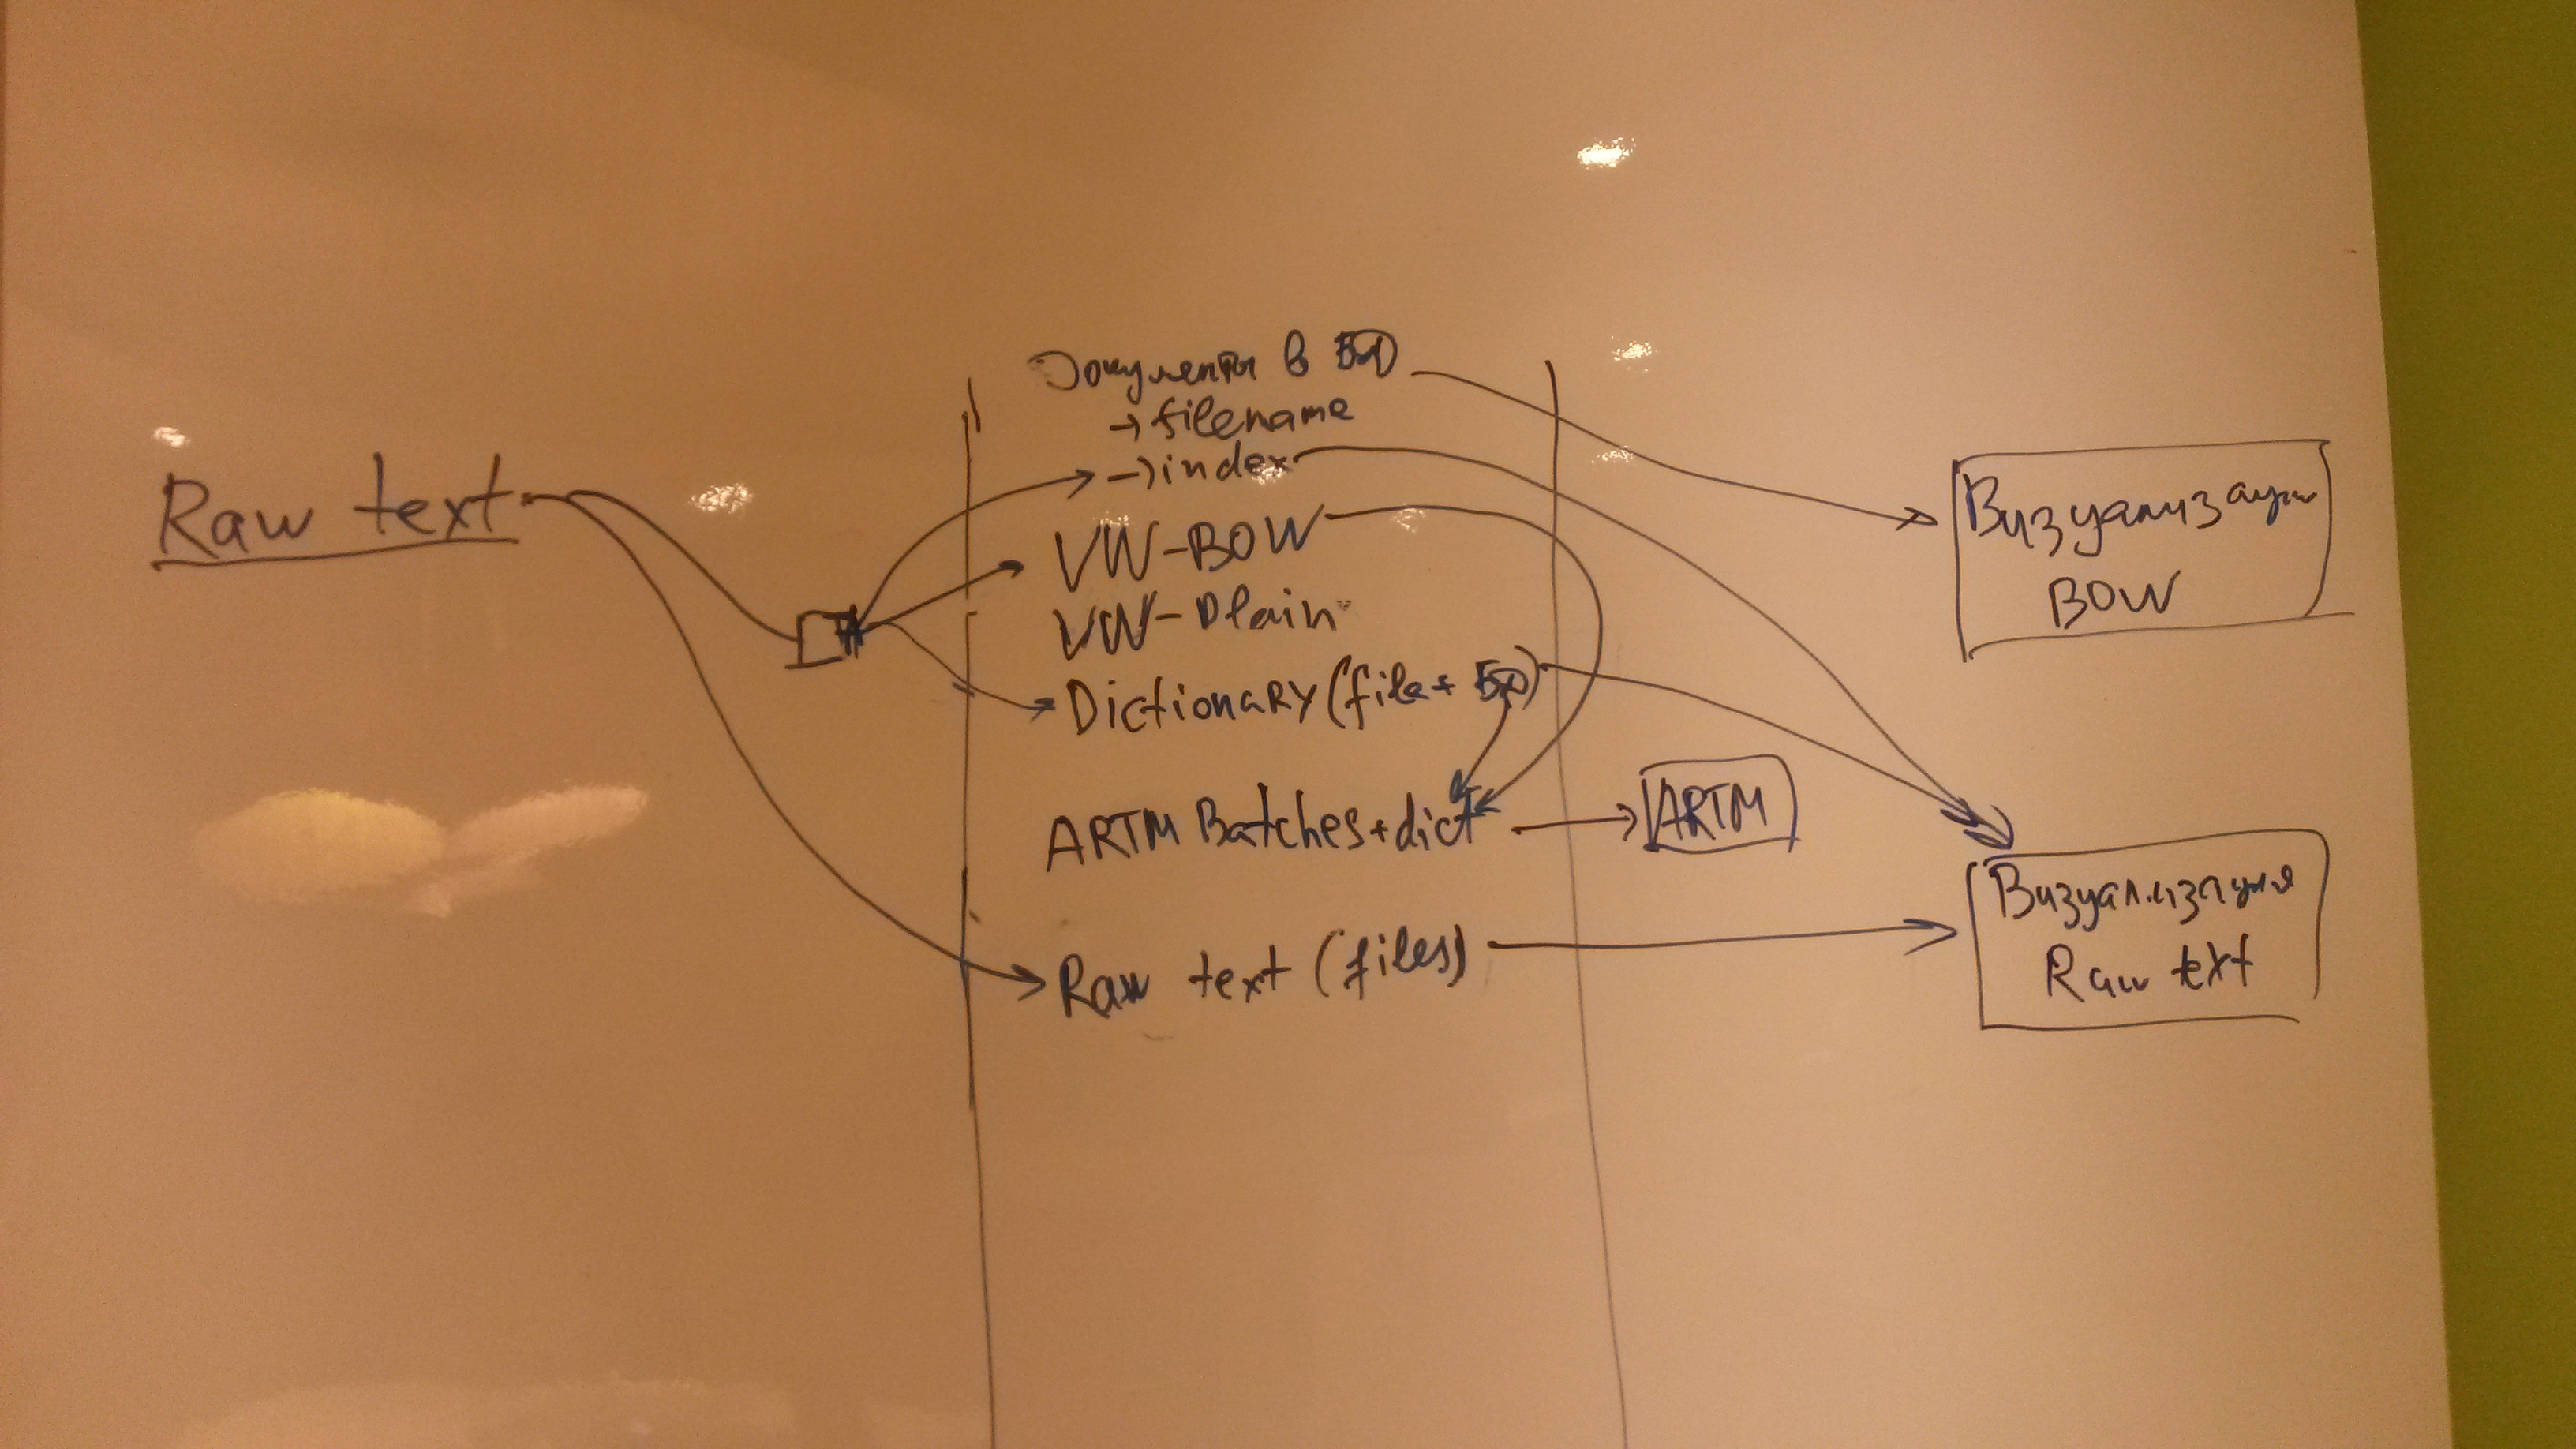 Raw text
Документы в БД
→ filename
→ index
VW-BOW
VW-Plain
Dictionary (file + БД)
ARTM Batches + dict
Raw text (files)
ARTM
Визуализация
BOW
Визуализация
Raw text